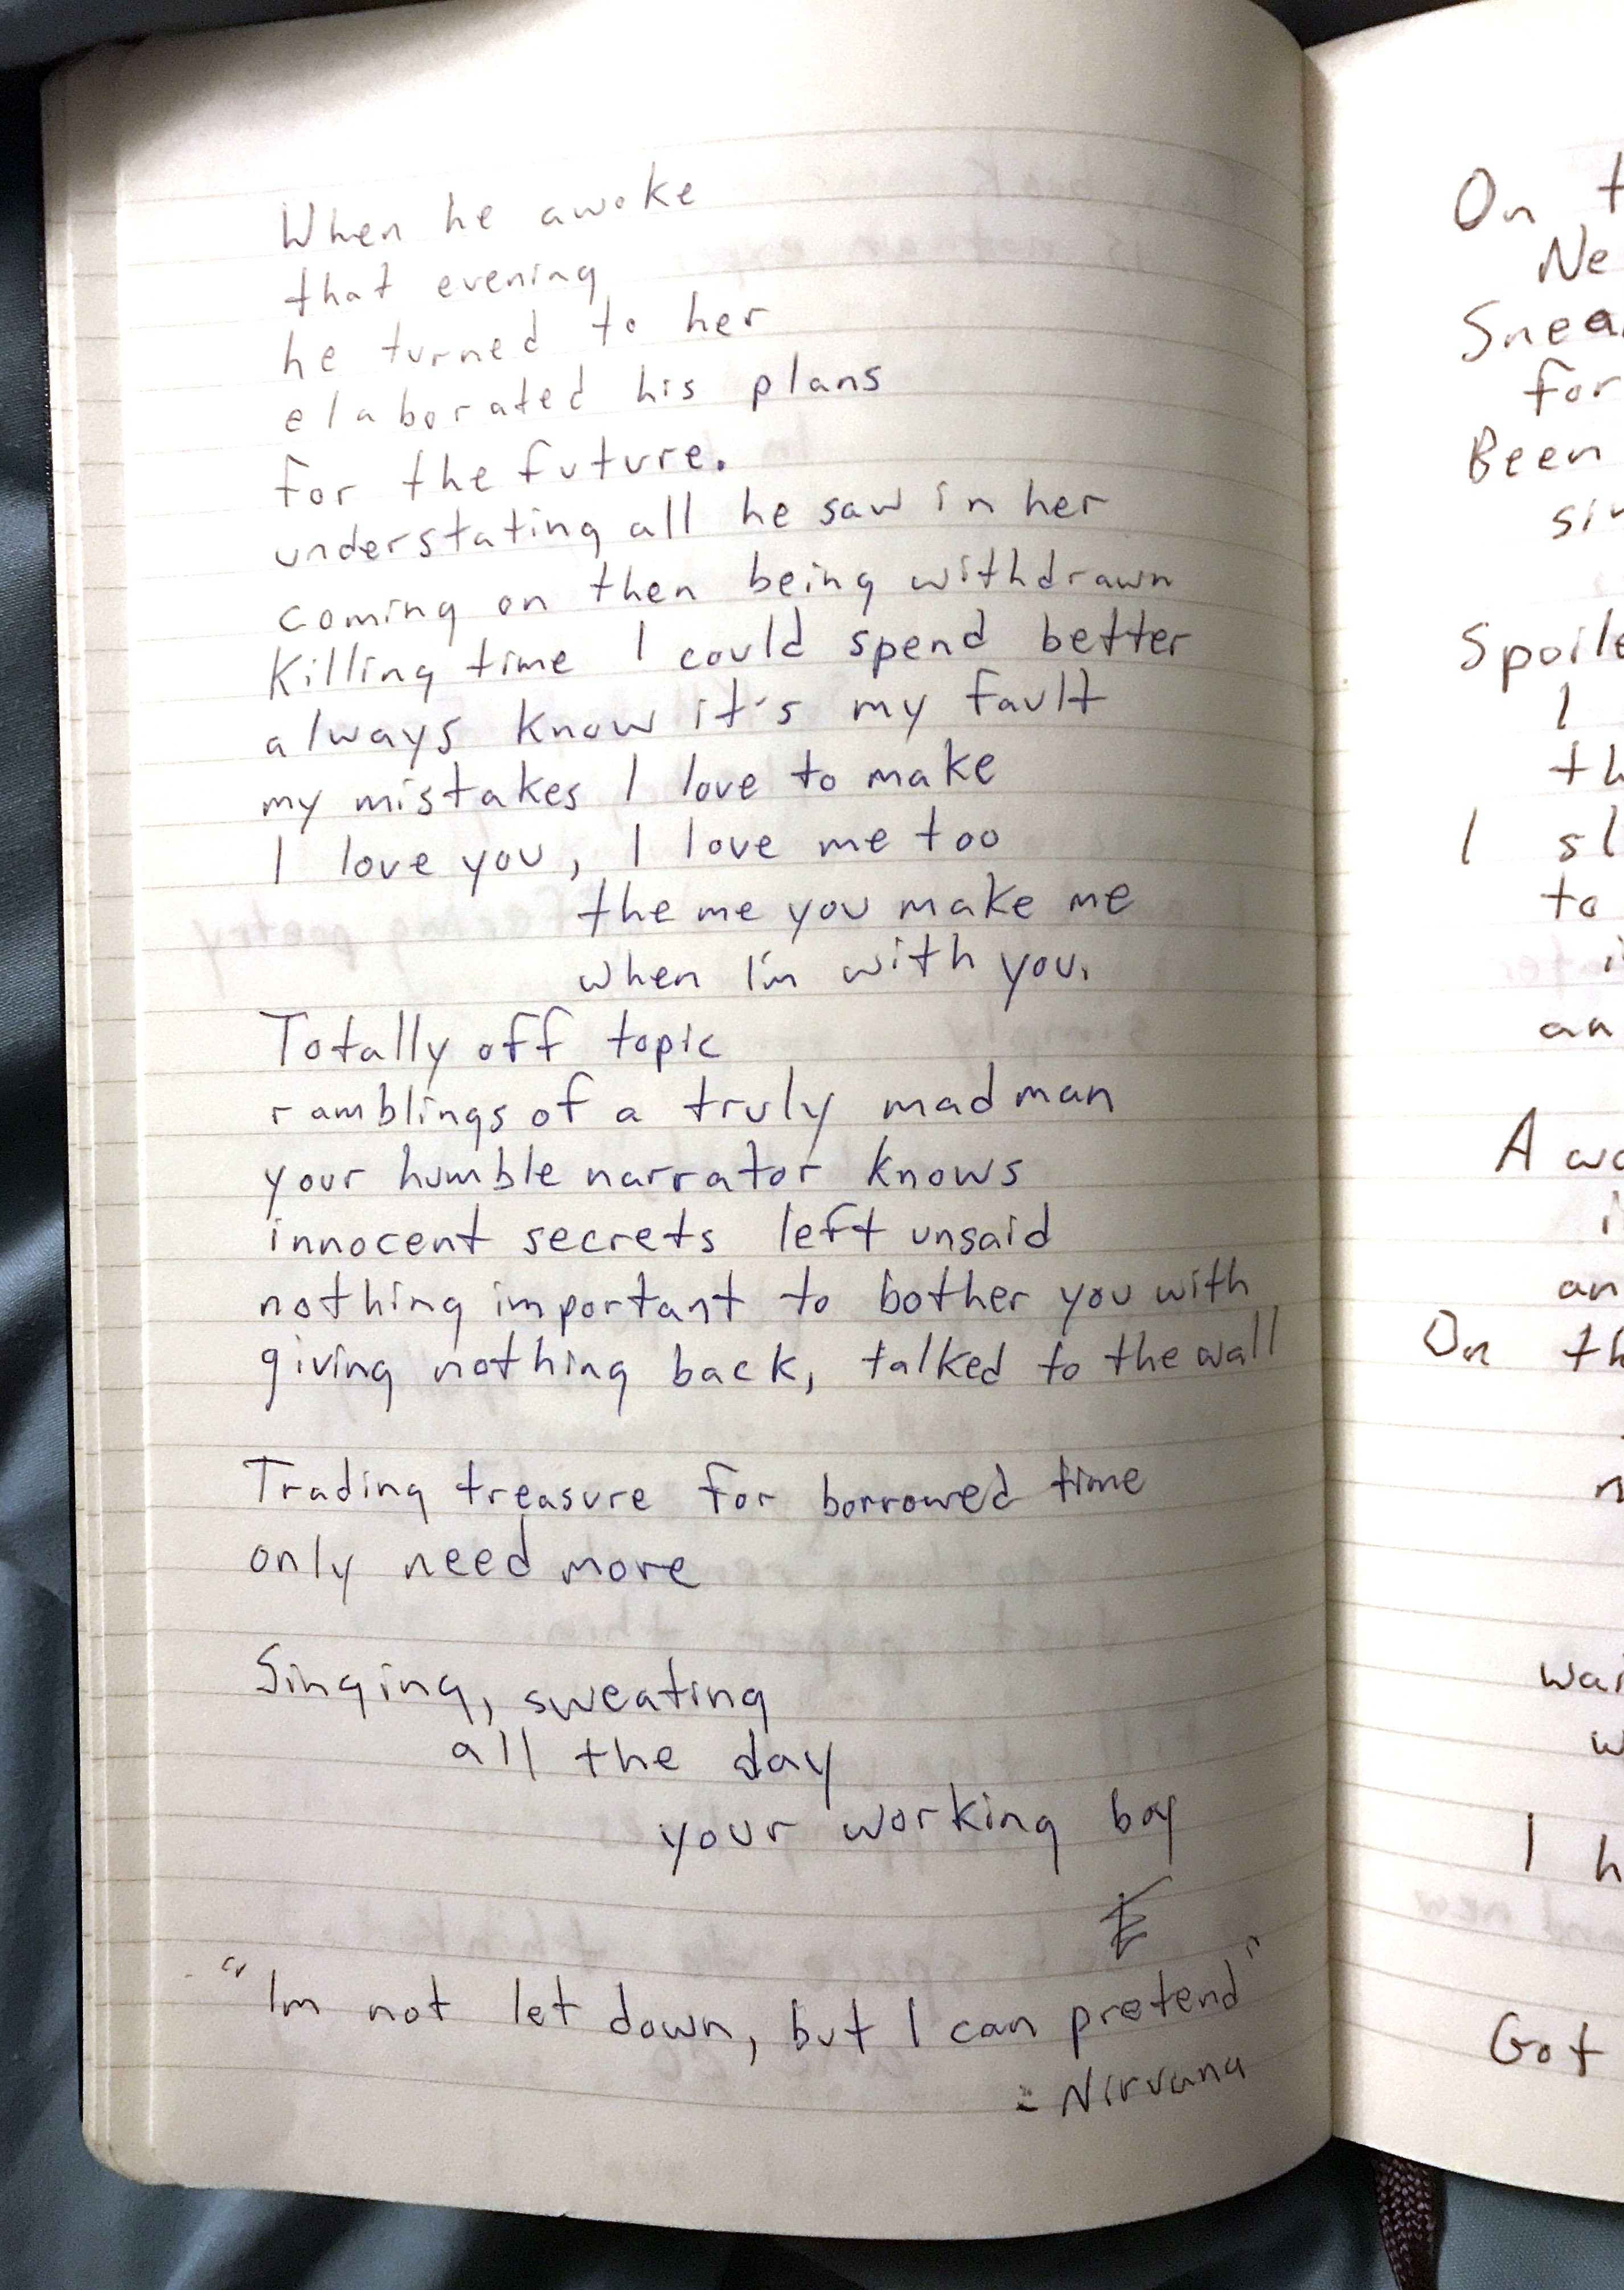 When he awoke
that evening
he turned to her
elaborated his plans
for the future.
understating all he saw in her
coming on then being withdrawn
Killing time I could spend better
always know it's my fault
my mistakes I love to make
I love you, I love me too
the me you make me
when I'm with you.
Totally off topic
ramblings of a truly mad man
your humble narrator knows
innocent secrets left unsaid
nothing important to bother you with
giving nothing back, talked to the wall
Trading treasure for borrowed time
only need more
Singing, sweating
all the day
your working boy
E
"Im not let down, but I can pretend"
- Nirvana
On t
Ne
Snea
for
Been
sin
Spoile
I
th
I sl
to
i
an
A wa
i
an
On th
n
wai
w
I h
Got